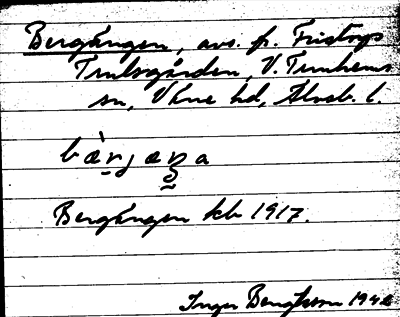 Bergängen, avs. fr. Fristorp
Trulsgården, V. Tunhems
sn, Väne hd, Älvsb. l.
bæ̀rjæŋa
Bergängen kb 1917.
Inger Bengtsson 1942